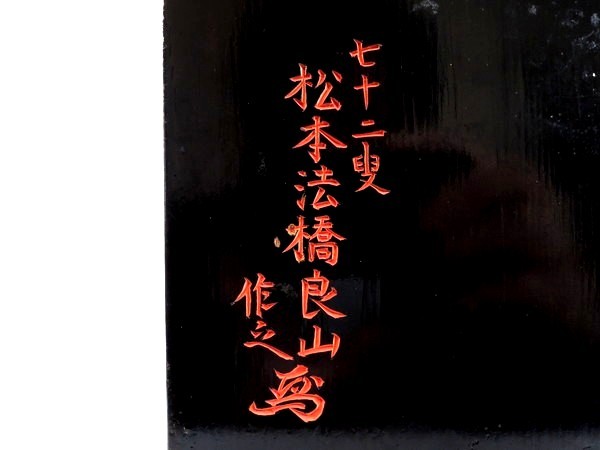 七十二叟
松本法橋良山
作之